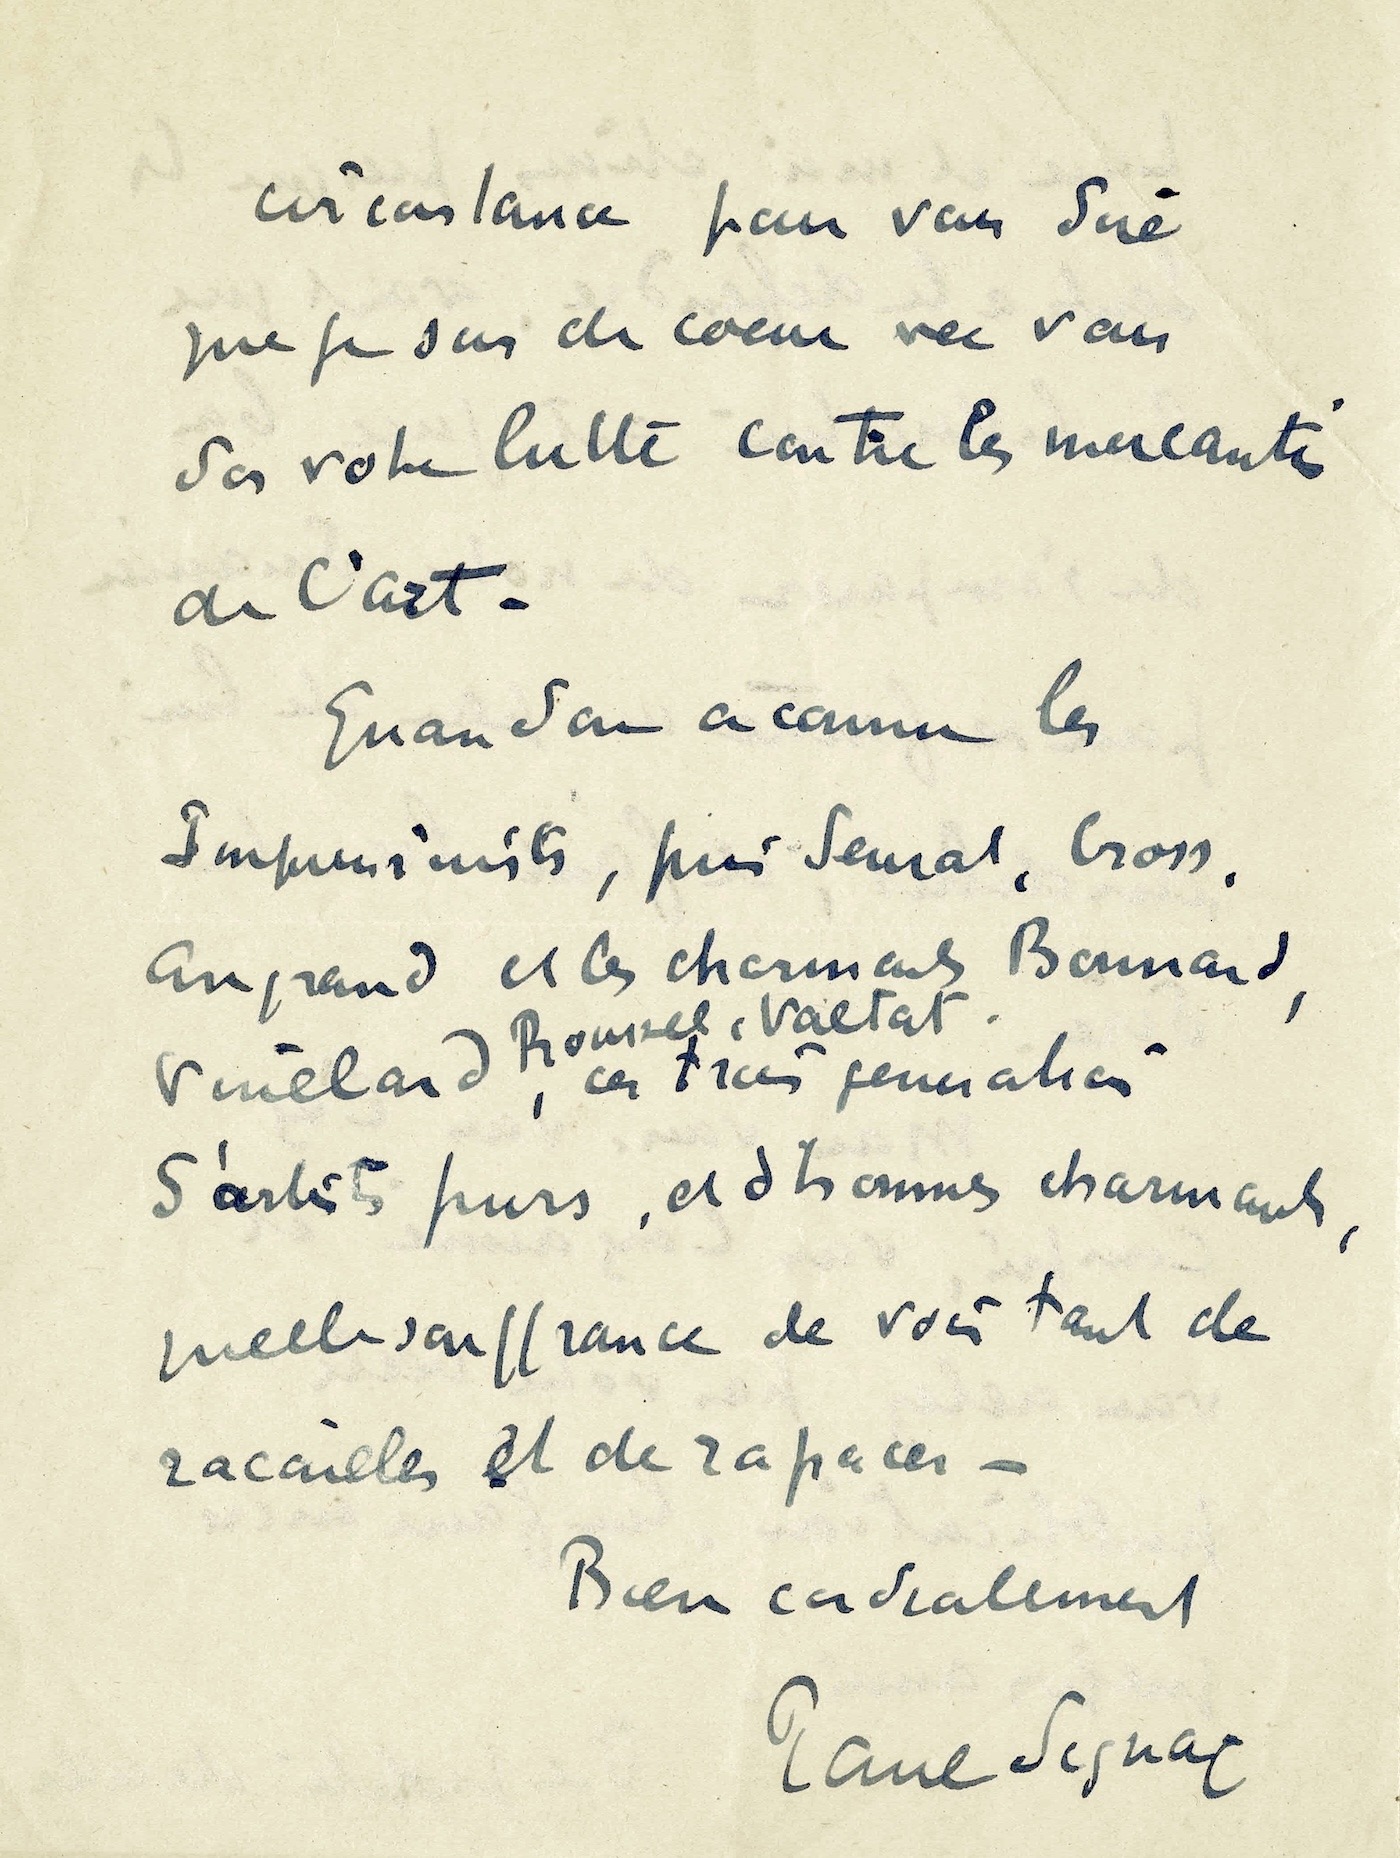 circonstance pour vous dire
que je suis de coeur avec vous
dans votre lutte contre les mercantis
de l'art -
Quand on a connu les
Impressionnistes, puis Seurat, Cross,
Angrand et les charmants Bonnard,
Roussel, Valtat.
Vuillard, ces trois générations
d'artistes purs, et d'hommes charmants,
quelle souffrance de voir tant de
racailles et de rapaces -
Bien cordialement
Paul Signac